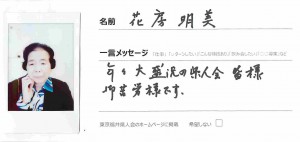 名前 花房明美
一言メッセージ
年々大盛況の県人会 皆様
御苦労様です。
東京福井県人会のホームページに掲載 希望しない □